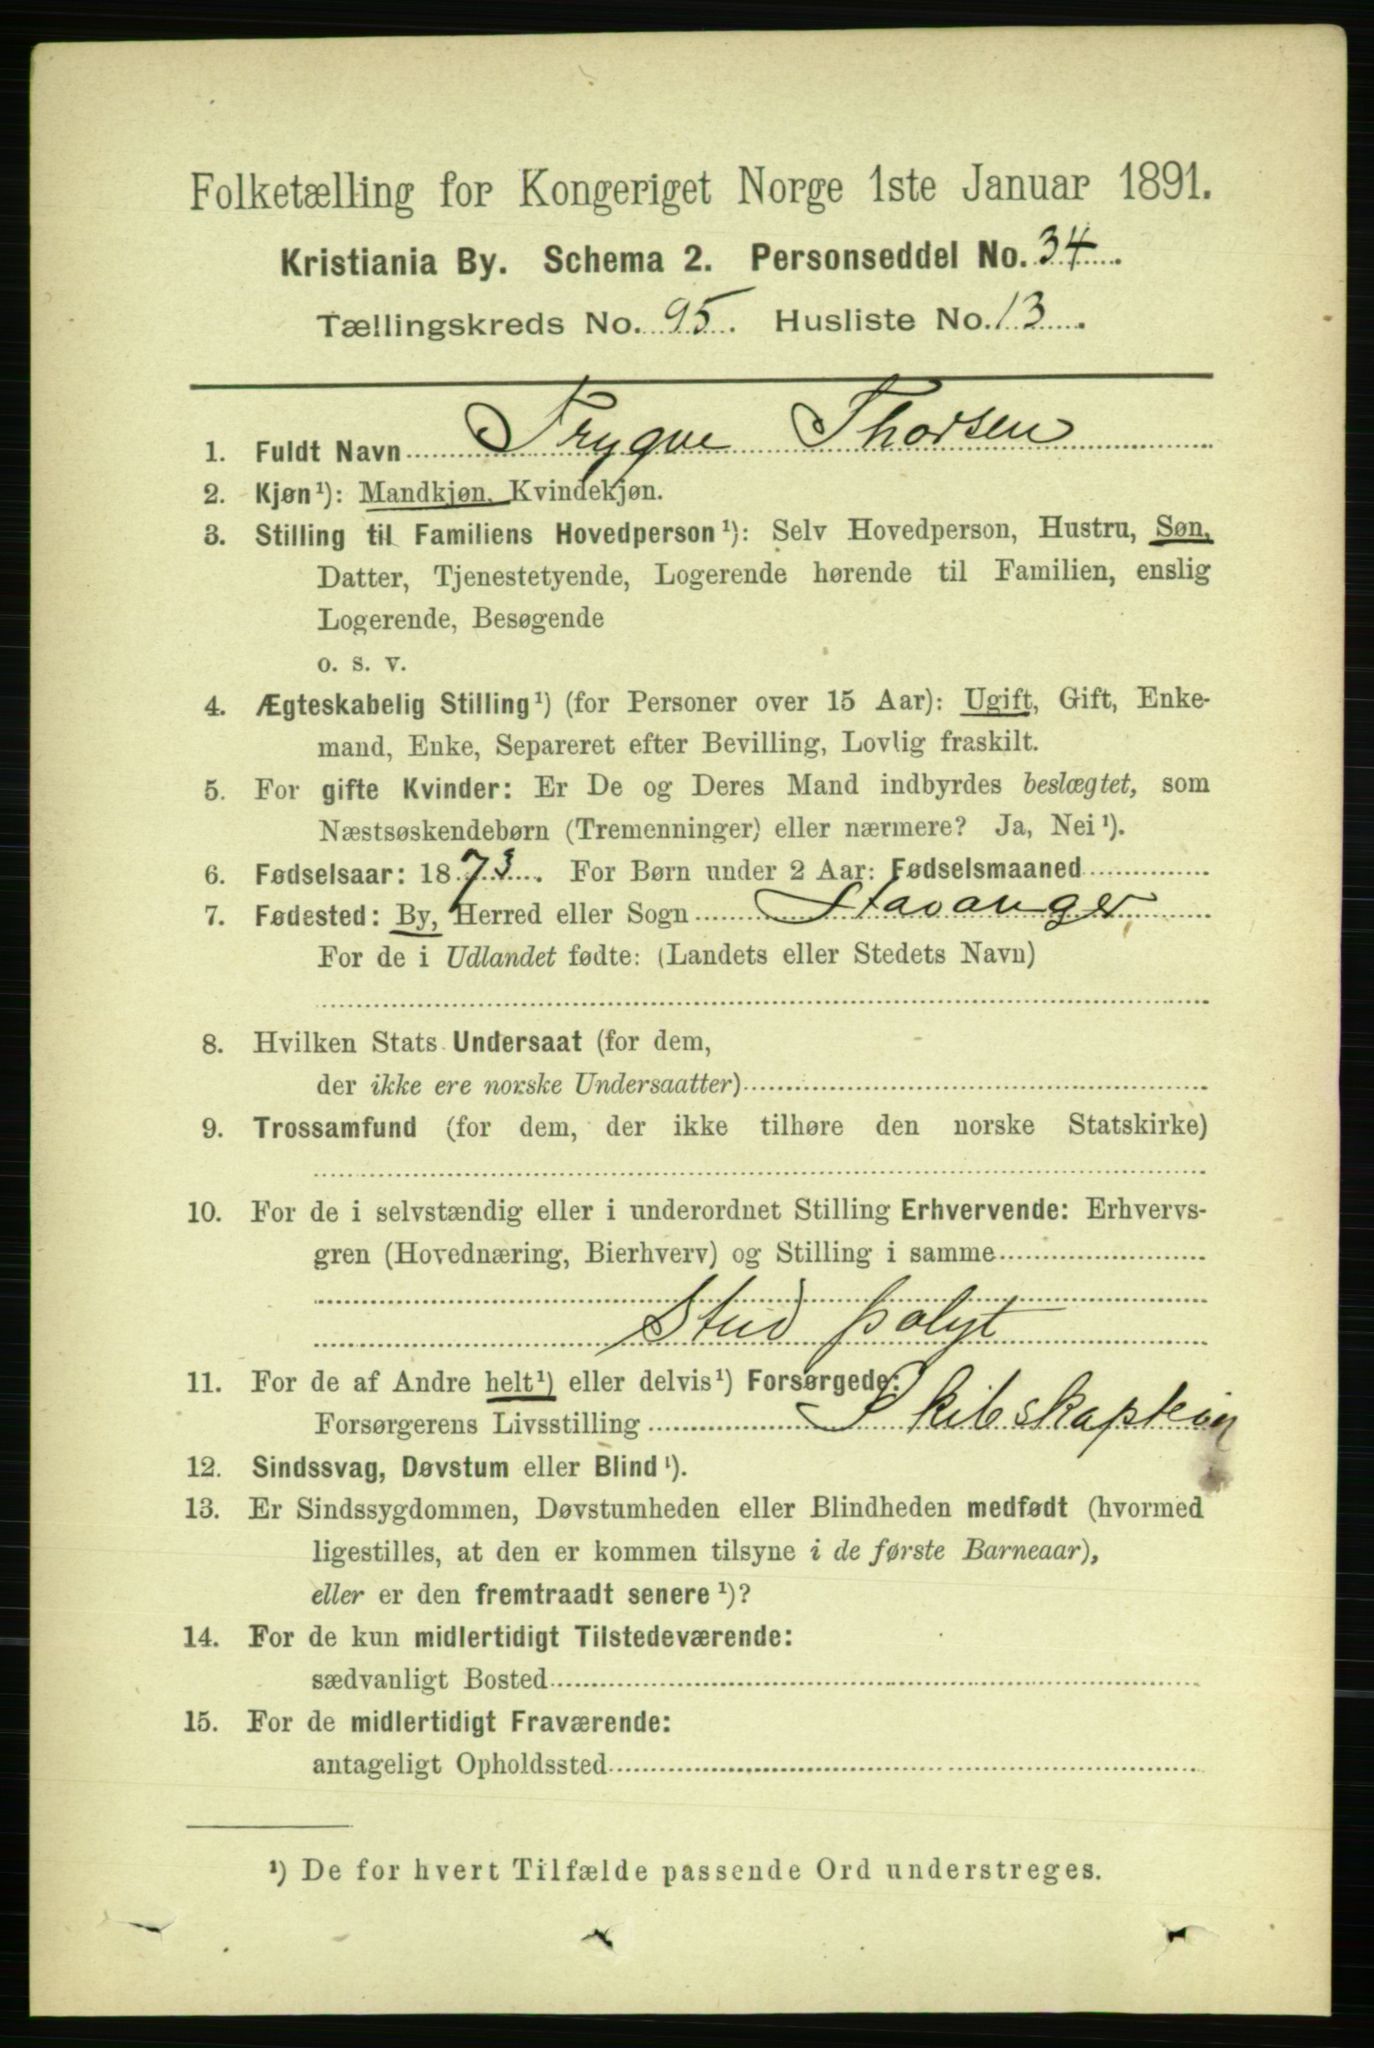 Folketælling for Kongeriget Norge 1ste Januar 1891.
Kristiania By. Schema 2. Personseddel No. 34.
Tællingskreds No. 95. Husliste No. 13.
1. Fuldt Navn Trygve Thorsen
2. Kjøn¹): Mandkjøn, Kvindekjøn.
3. Stilling til Familiens Hovedperson¹): Selv Hovedperson, Hustru, Søn,
Datter, Tjenestetyende, Logerende hørende til Familien, enslig
Logerende, Besøgende
o. s. v.
4. Ægteskabelig Stilling¹) (for Personer over 15 Aar): Ugift, Gift, Enke-
mand, Enke, Separeret efter Bevilling, Lovlig fraskilt.
5. For gifte Kvinder: Er De og Deres Mand indbyrdes beslægtet, som
Næstsøskendebørn (Tremenninger) eller nærmere? Ja, Nei¹).
6. Fødselsaar: 1873. For Børn under 2 Aar: Fødselsmaaned
7. Fødested: By, Herred eller Sogn Stavanger
For de i Udlandet fødte: (Landets eller Stedets Navn)
8. Hvilken Stats Undersaat (for dem,
der ikke ere norske Undersaatter)
9. Trossamfund (for dem, der ikke tilhøre den norske Statskirke)
10. For de i selvstændig eller i underordnet Stilling Erhvervende: Erhvervs-
gren (Hovednæring, Bierhverv) og Stilling i samme
Stud polyt
11. For de af Andre helt¹) eller delvis¹) Forsørgede:
Forsørgerens Livsstilling Skibskaptein
12. Sindssvag, Døvstum eller Blind¹).
13. Er Sindssygdommen, Døvstumheden eller Blindheden medfødt (hvormed
ligestilles, at den er kommen tilsyne i de første Barneaar),
eller er den fremtraadt senere¹)?
14. For de kun midlertidigt Tilstedeværende:
sædvanligt Bosted
15. For de midlertidigt Fraværende:
antageligt Opholdssted
¹) De for hvert Tilfælde passende Ord understreges.